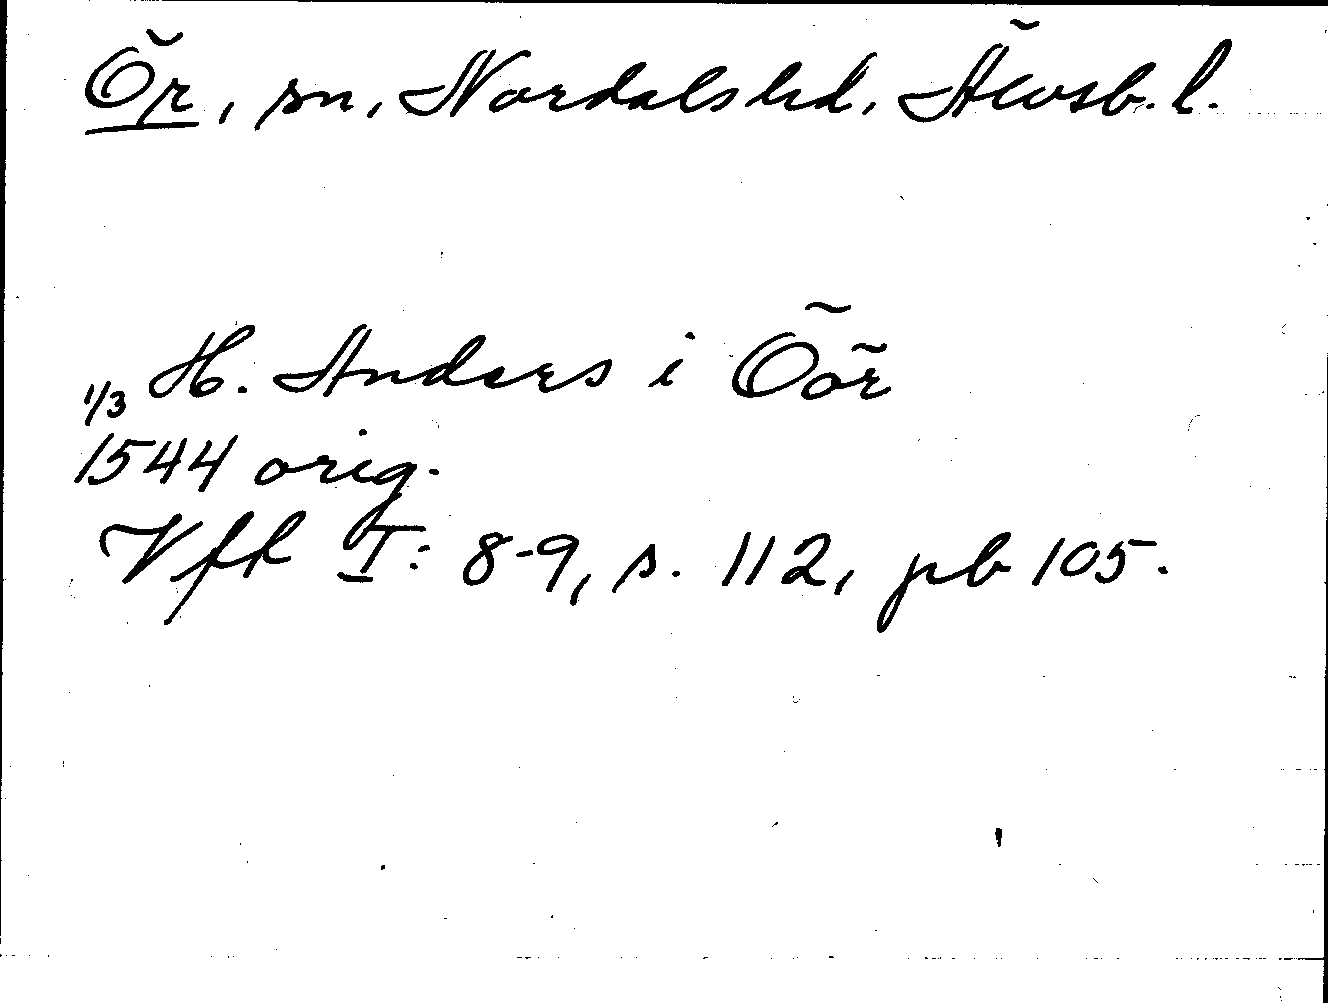 Ör, sn, Nordals hd, Älvsb. l.
H. Anders i Öör
1/3
1544 orig.
Vfk I: 8-9, s. 112, pb 105.